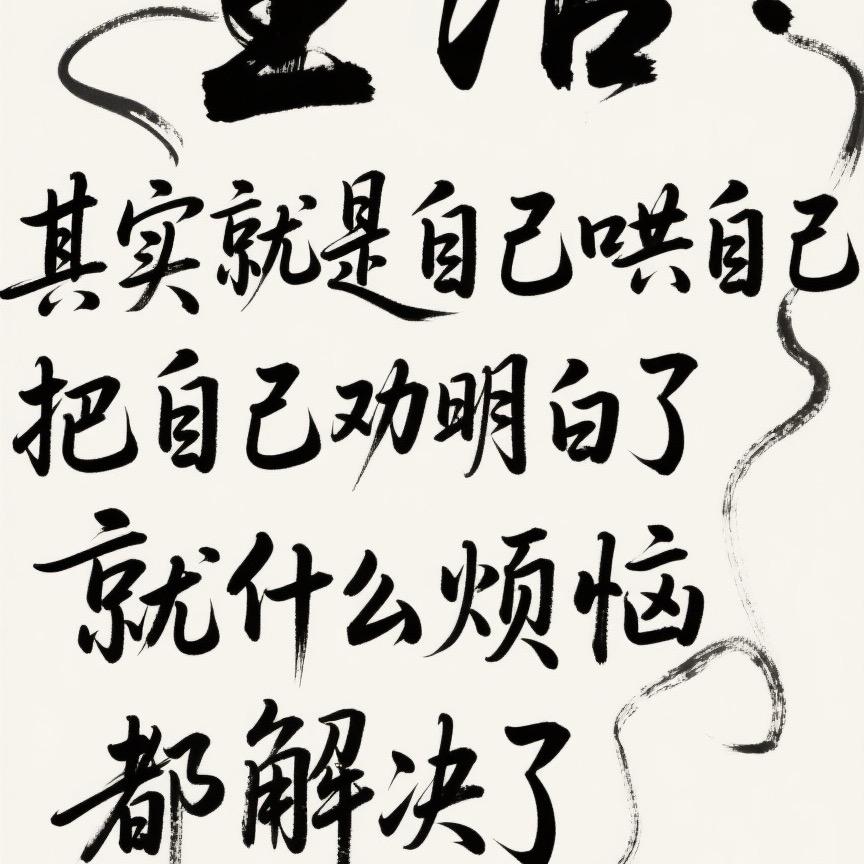 生活：
其实就是自己哄自己
把自己劝明白了
就什么烦恼
都解决了